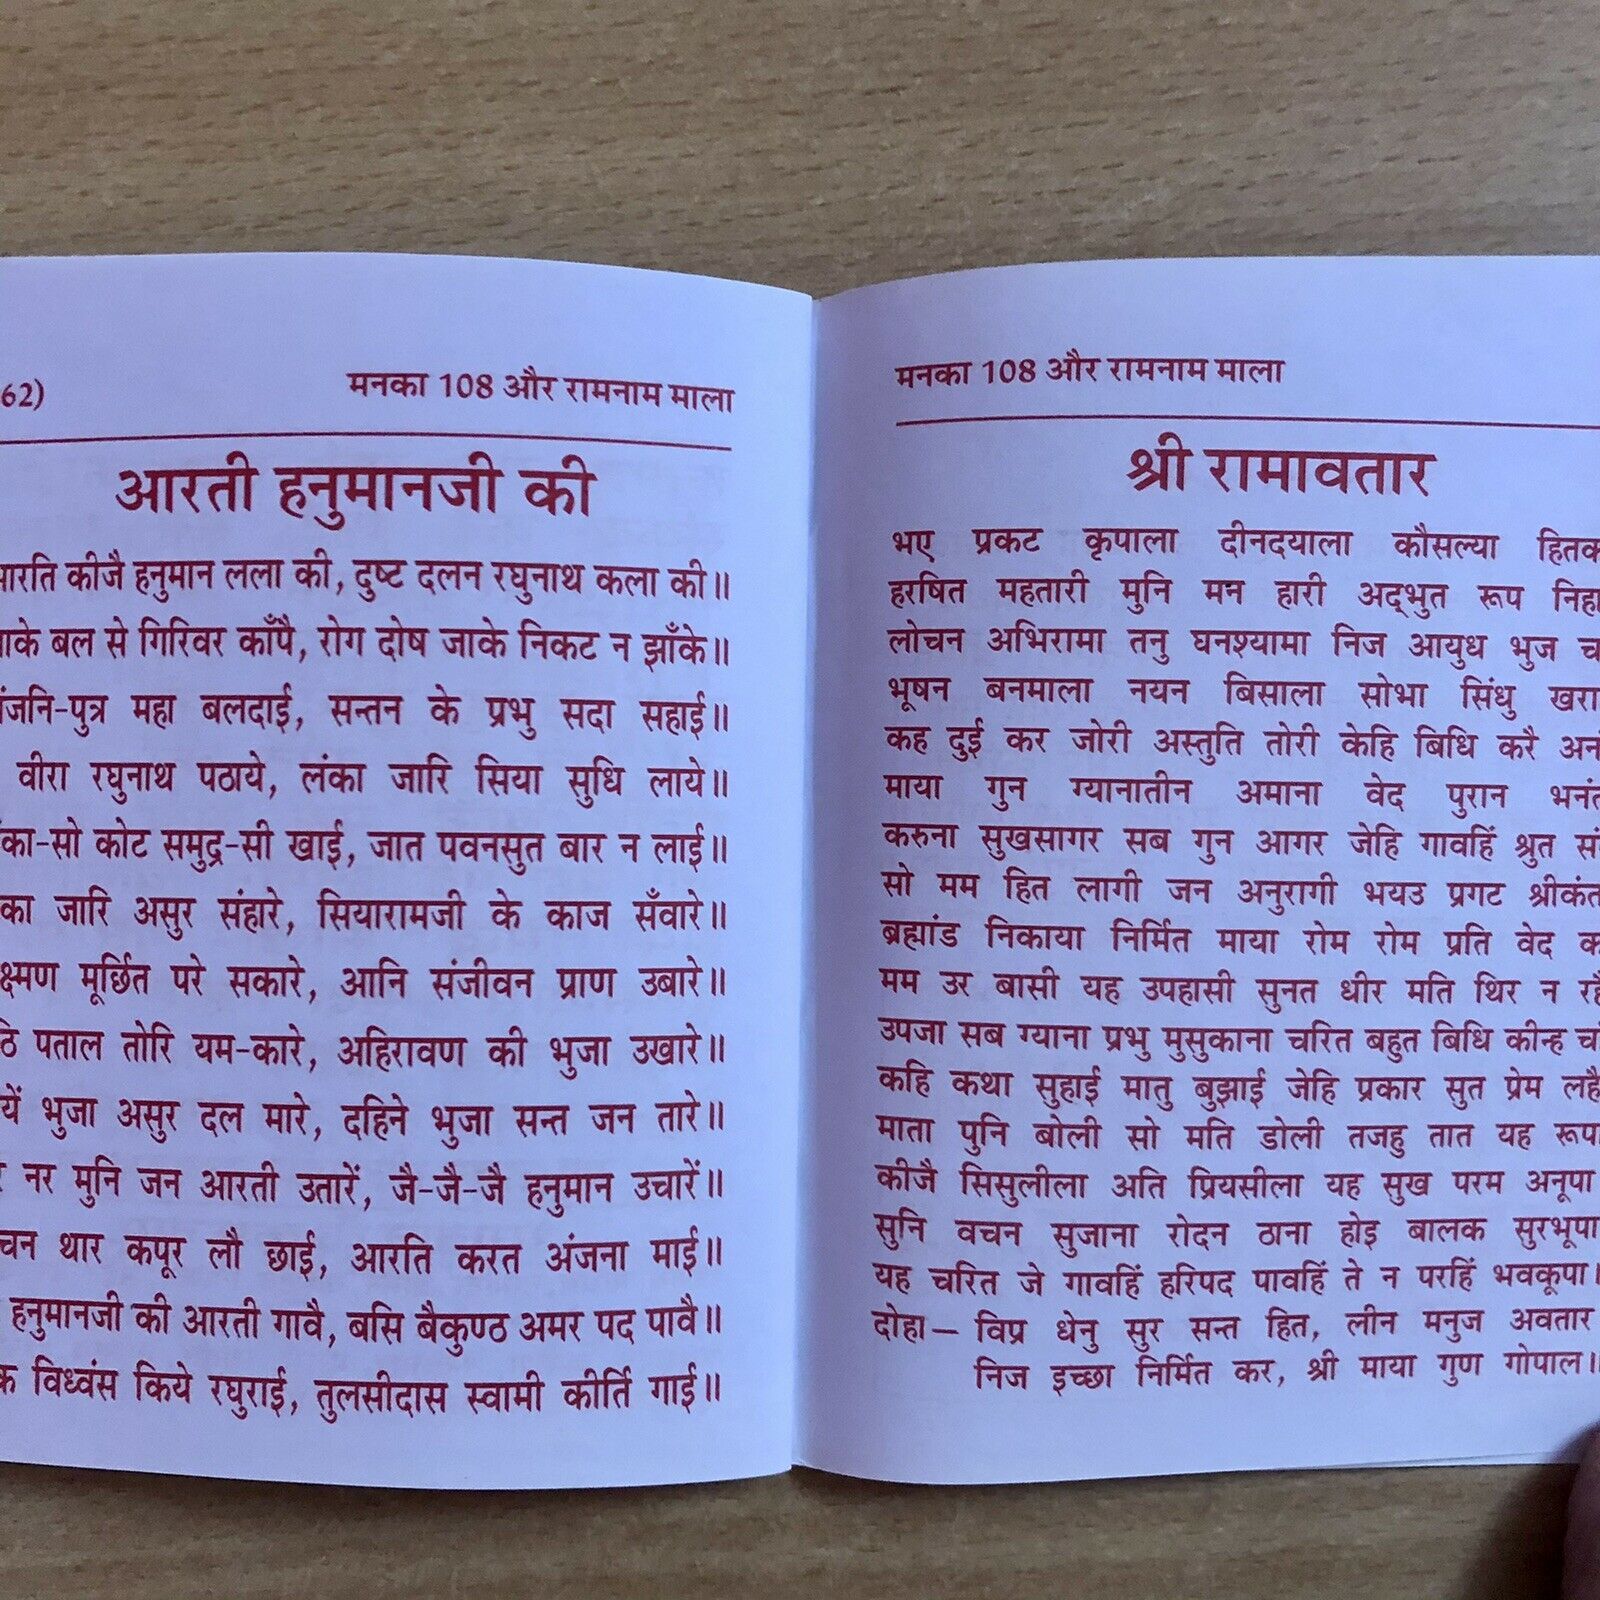 62) मनका 108 और रामनाम माला
आरती हनुमानजी की
कीजै हनुमान लला की, दुष्ट दलन रघुनाथ कला की॥
बल से गिरिवर काँपै, रोग दोष जाके निकट न झाँके॥
महा बलदाई, सन्तन के प्रभु सदा सहाई॥
वीरा रघुनाथ पठाये, लंका जारि सिया सुधि लाये॥
कोट समुद्र-सी खाई, जात पवनसुत बार न लाई॥
जारि असुर संहारे, सियारामजी के काज सँवारे॥
मूर्छित परे सकारे, आनि संजीवन प्राण उबारे॥
पताल तोरि यम-कारे, अहिरावण की भुजा उखारे॥
भुजा असुर दल मारे, दहिने भुजा सन्त जन तारे॥
नर मुनि जन आरती उतारें, जै-जै-जै हनुमान उचारें॥
थार कपूर लौ छाई, आरति करत अंजना माई॥
हनुमानजी की आरती गावै, बसि बैकुण्ठ अमर पद पावै॥
विध्वंस किये रघुराई, तुलसीदास स्वामी कीर्ति गाई॥
मनका 108 और रामनाम माला
श्री रामावतार
भए प्रकट कृपाला दीनदयाला कौसल्या
हरषित महतारी मुनि मन हारी अद्भुत रूप
लोचन अभिरामा तनु घनश्यामा निज आयुध भुज
भूषन बनमाला नयन बिसाला सोभा सिंधु
कह दुई कर जोरी अस्तुति तोरी केहि बिधि करै
माया गुन ग्यानातीन अमाना वेद पुरान
करुना सुखसागर सब गुन आगर जेहि गावहिं श्रुत
सो मम हित लागी जन अनुरागी भयउ प्रगट
ब्रह्मांड निकाया निर्मित माया रोम रोम प्रति वेद
मम उर बासी यह उपहासी सुनत धीर मति थिर न
उपजा सब ग्याना प्रभु मुसुकाना चरित बहुत बिधि कीन्ह
कहि कथा सुहाई मातु बुझाई जेहि प्रकार सुत प्रेम
माता पुनि बोली सो मति डोली तजहु तात यह रूपा
कीजै सिसुलीला अति प्रियसीला यह सुख परम अनूपा
सुनि वचन सुजाना रोदन ठाना होइ बालक सुरभूपा
यह चरित जे गावहिं हरिपद पावहिं ते न परहिं भवकूपा।
दोहा— विप्र धेनु सुर सन्त हित, लीन मनुज अवतार
निज इच्छा निर्मित कर, श्री माया गुण गोपाल॥